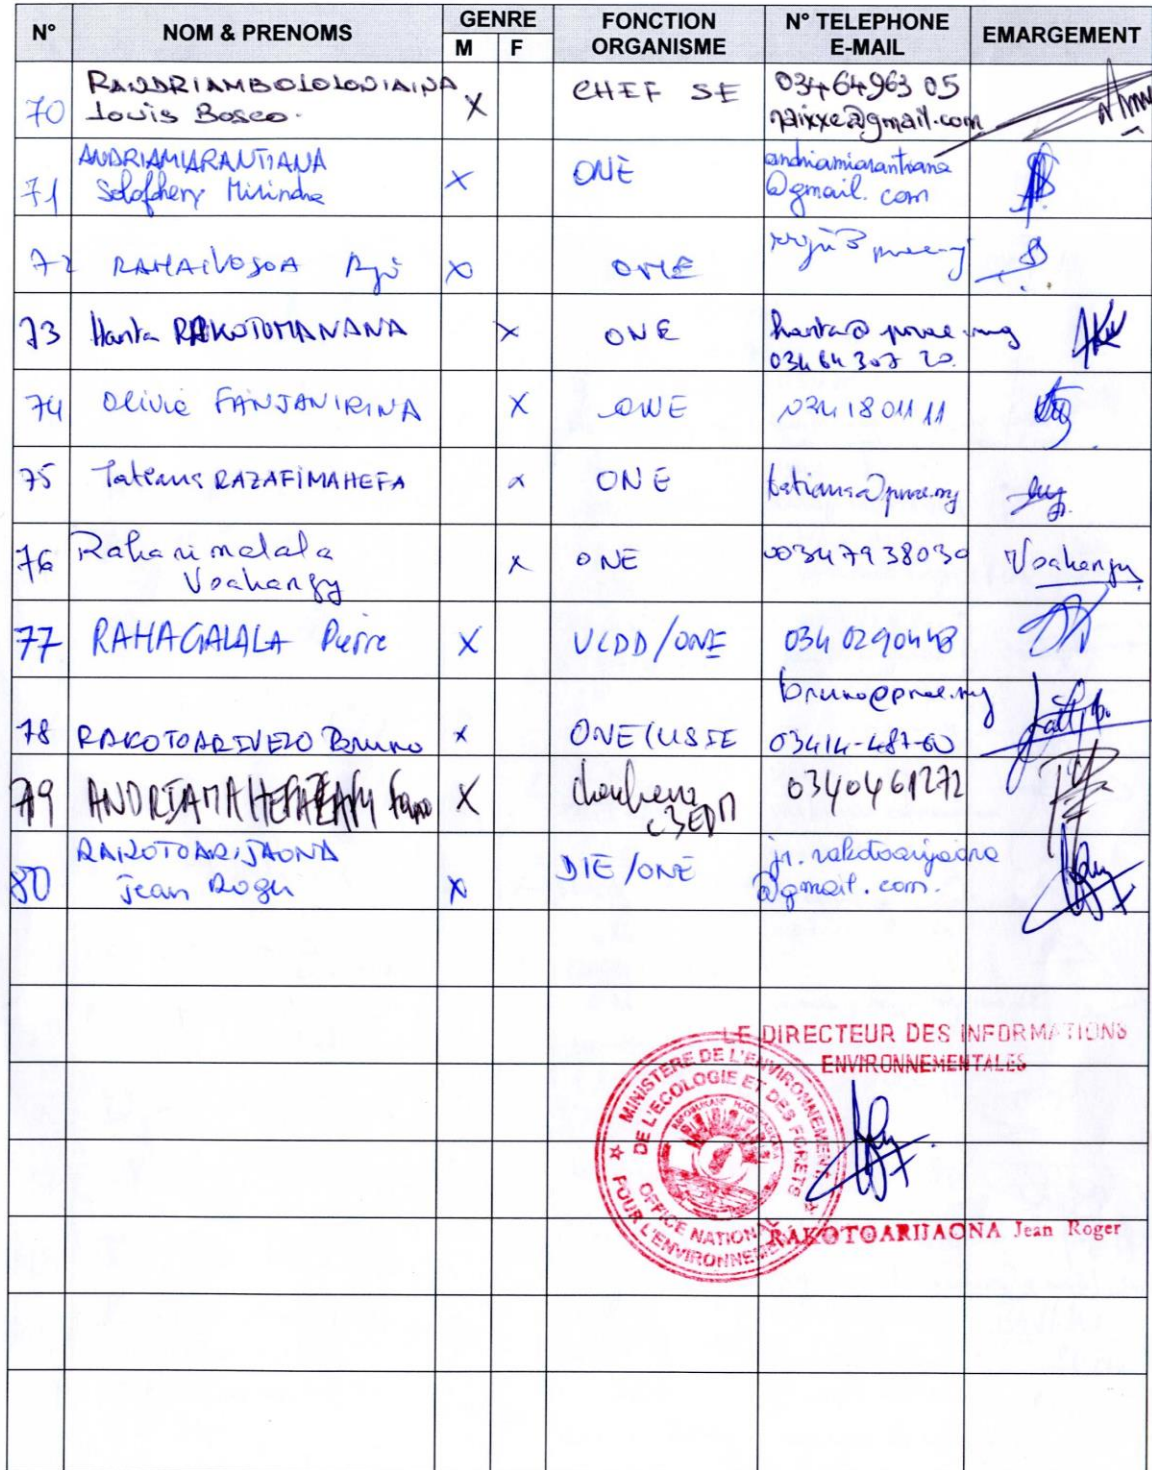 N° NOM & PRENOMS GENRE FONCTION ORGANISME N° TELEPHONE E-MAIL EMARGEMENT
M F
70 RANDRIAMBOLOLONIAINA
Louis Bosco. X CHEF SE 034 64 963 05
naixxe@gmail.com
71 ANDRIAMIARANTIANA
Solofhery Mirindra X ONE andriamiarantiana
@gmail.com
72 X ONE
73 Hanta RAKOTOMANANA X ONE hanta@pnae.mg
034 64 307 20
74 Olivie FANJANIRINA X ONE 034 18 011 11
75 Tatiana RAZAFIMAHEFA X ONE tatiana@pnae.mg
76 Raharimalala
Voahangy X ONE 0034 79 38030 Voahangy
77 RAHAGALALA Pierre X UCDD/ONE 034 02904 48
78 RAKOTOARIVELO Bruno X ONE/USIE bruno@pnae.mg
03414-487-60
79 X 0340461272
80 RAKOTOARIJAONA
Jean Roger X DIE/ONE jr.rakotoarijaona
@gmail.com.
LE DIRECTEUR DES INFORMATIONS
ENVIRONNEMENTALES
MINISTERE DE L'ENVIRONNEMENT
DE L'ECOLOGIE ET DES FORETS
OFFICE NATIONAL
POUR L'ENVIRONNEMENT
RAKOTOARIJAONA Jean Roger